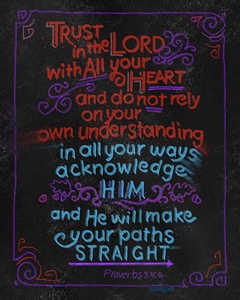 TRUST
in the LORD
with All your
HEART
and do not rely
on your
own understanding
in all your ways
acknowledge
HIM
and He will make
your paths
STRAIGHT
Proverbs 3:5,6